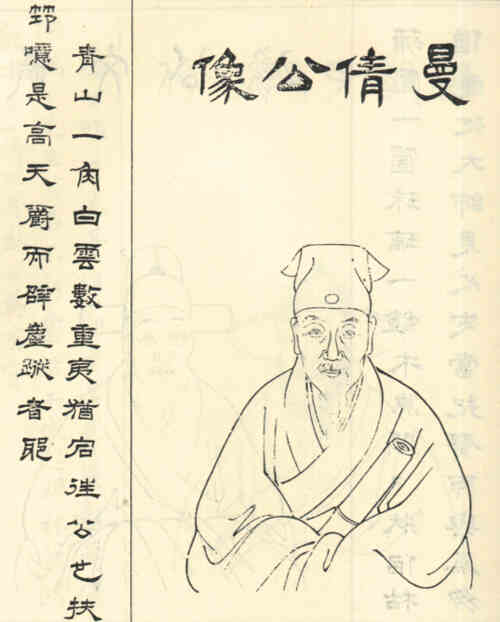 曼倩公像
青山一角白雲數重夷猶宕往公也扶
筇噫是高天爵而辟塵蹤者耶